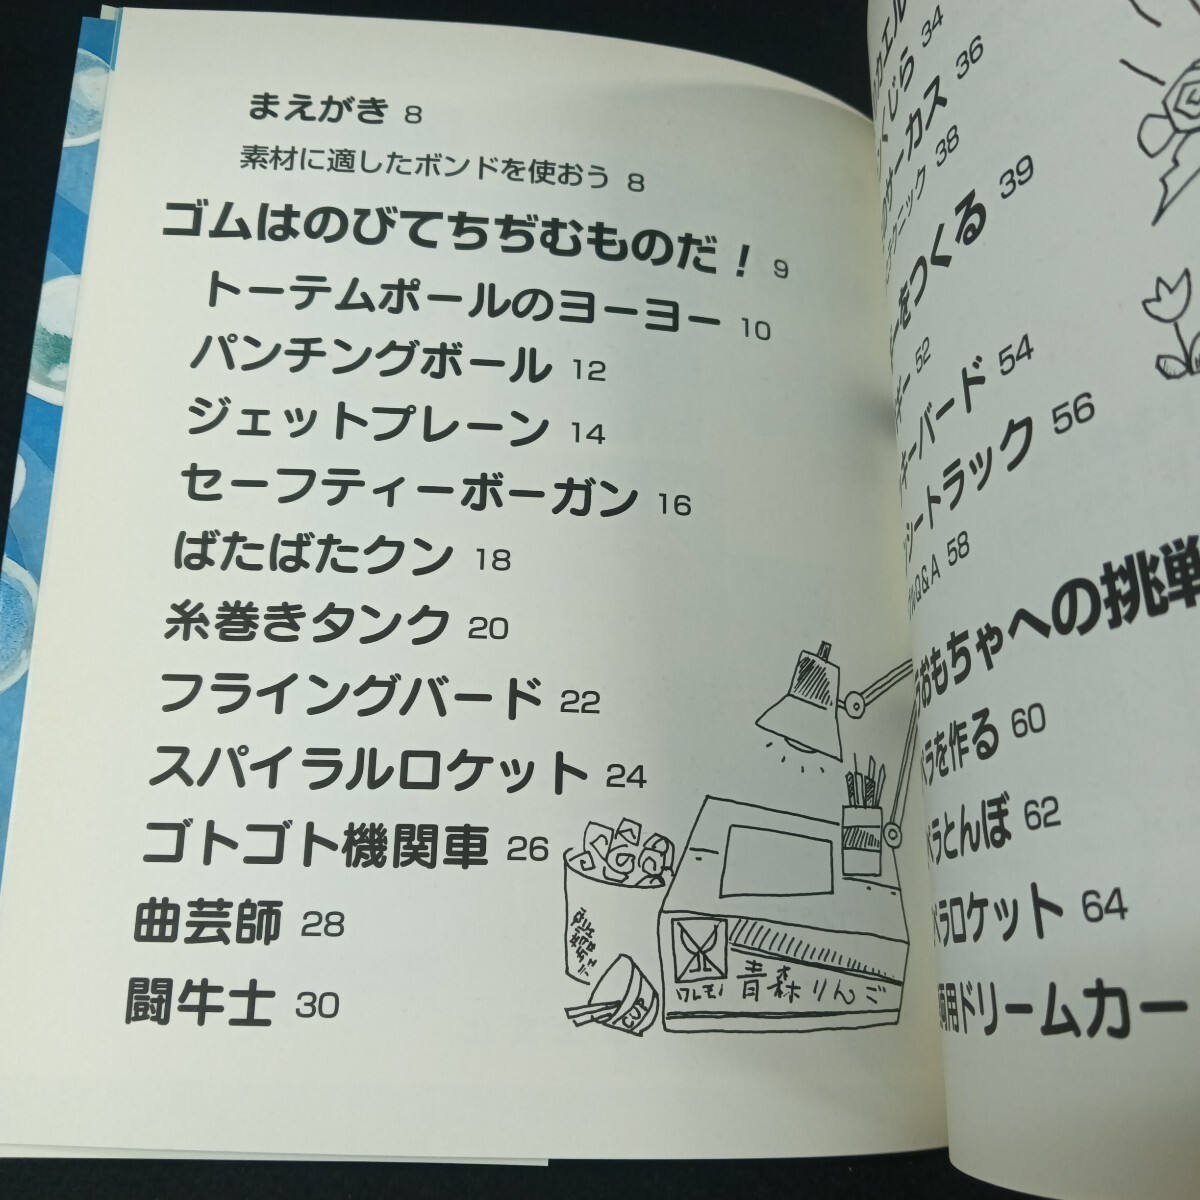 まえがき 8
素材に適したボンドを使おう 8
ゴムはのびてちぢむものだ！ 9
トーテムポールのヨーヨー 10
パンチングボール 12
ジェットプレーン 14
セーフティーボーガン 16
ばたばたクン 18
糸巻きタンク 20
フライングバード 22
スパイラルロケット 24
ゴトゴト機関車 26
曲芸師 28
闘牛士 30
ワレモノ
青森りんご
CUP
くじら 34
サーカス 36
テクニック 38
ーをつくる 39
ギー 52
キーバード 54
シートラック 56
Q&A 58
おもちゃへの挑戦
ラを作る 60
ラとんぼ 62
ラロケット 64
用ドリームカー